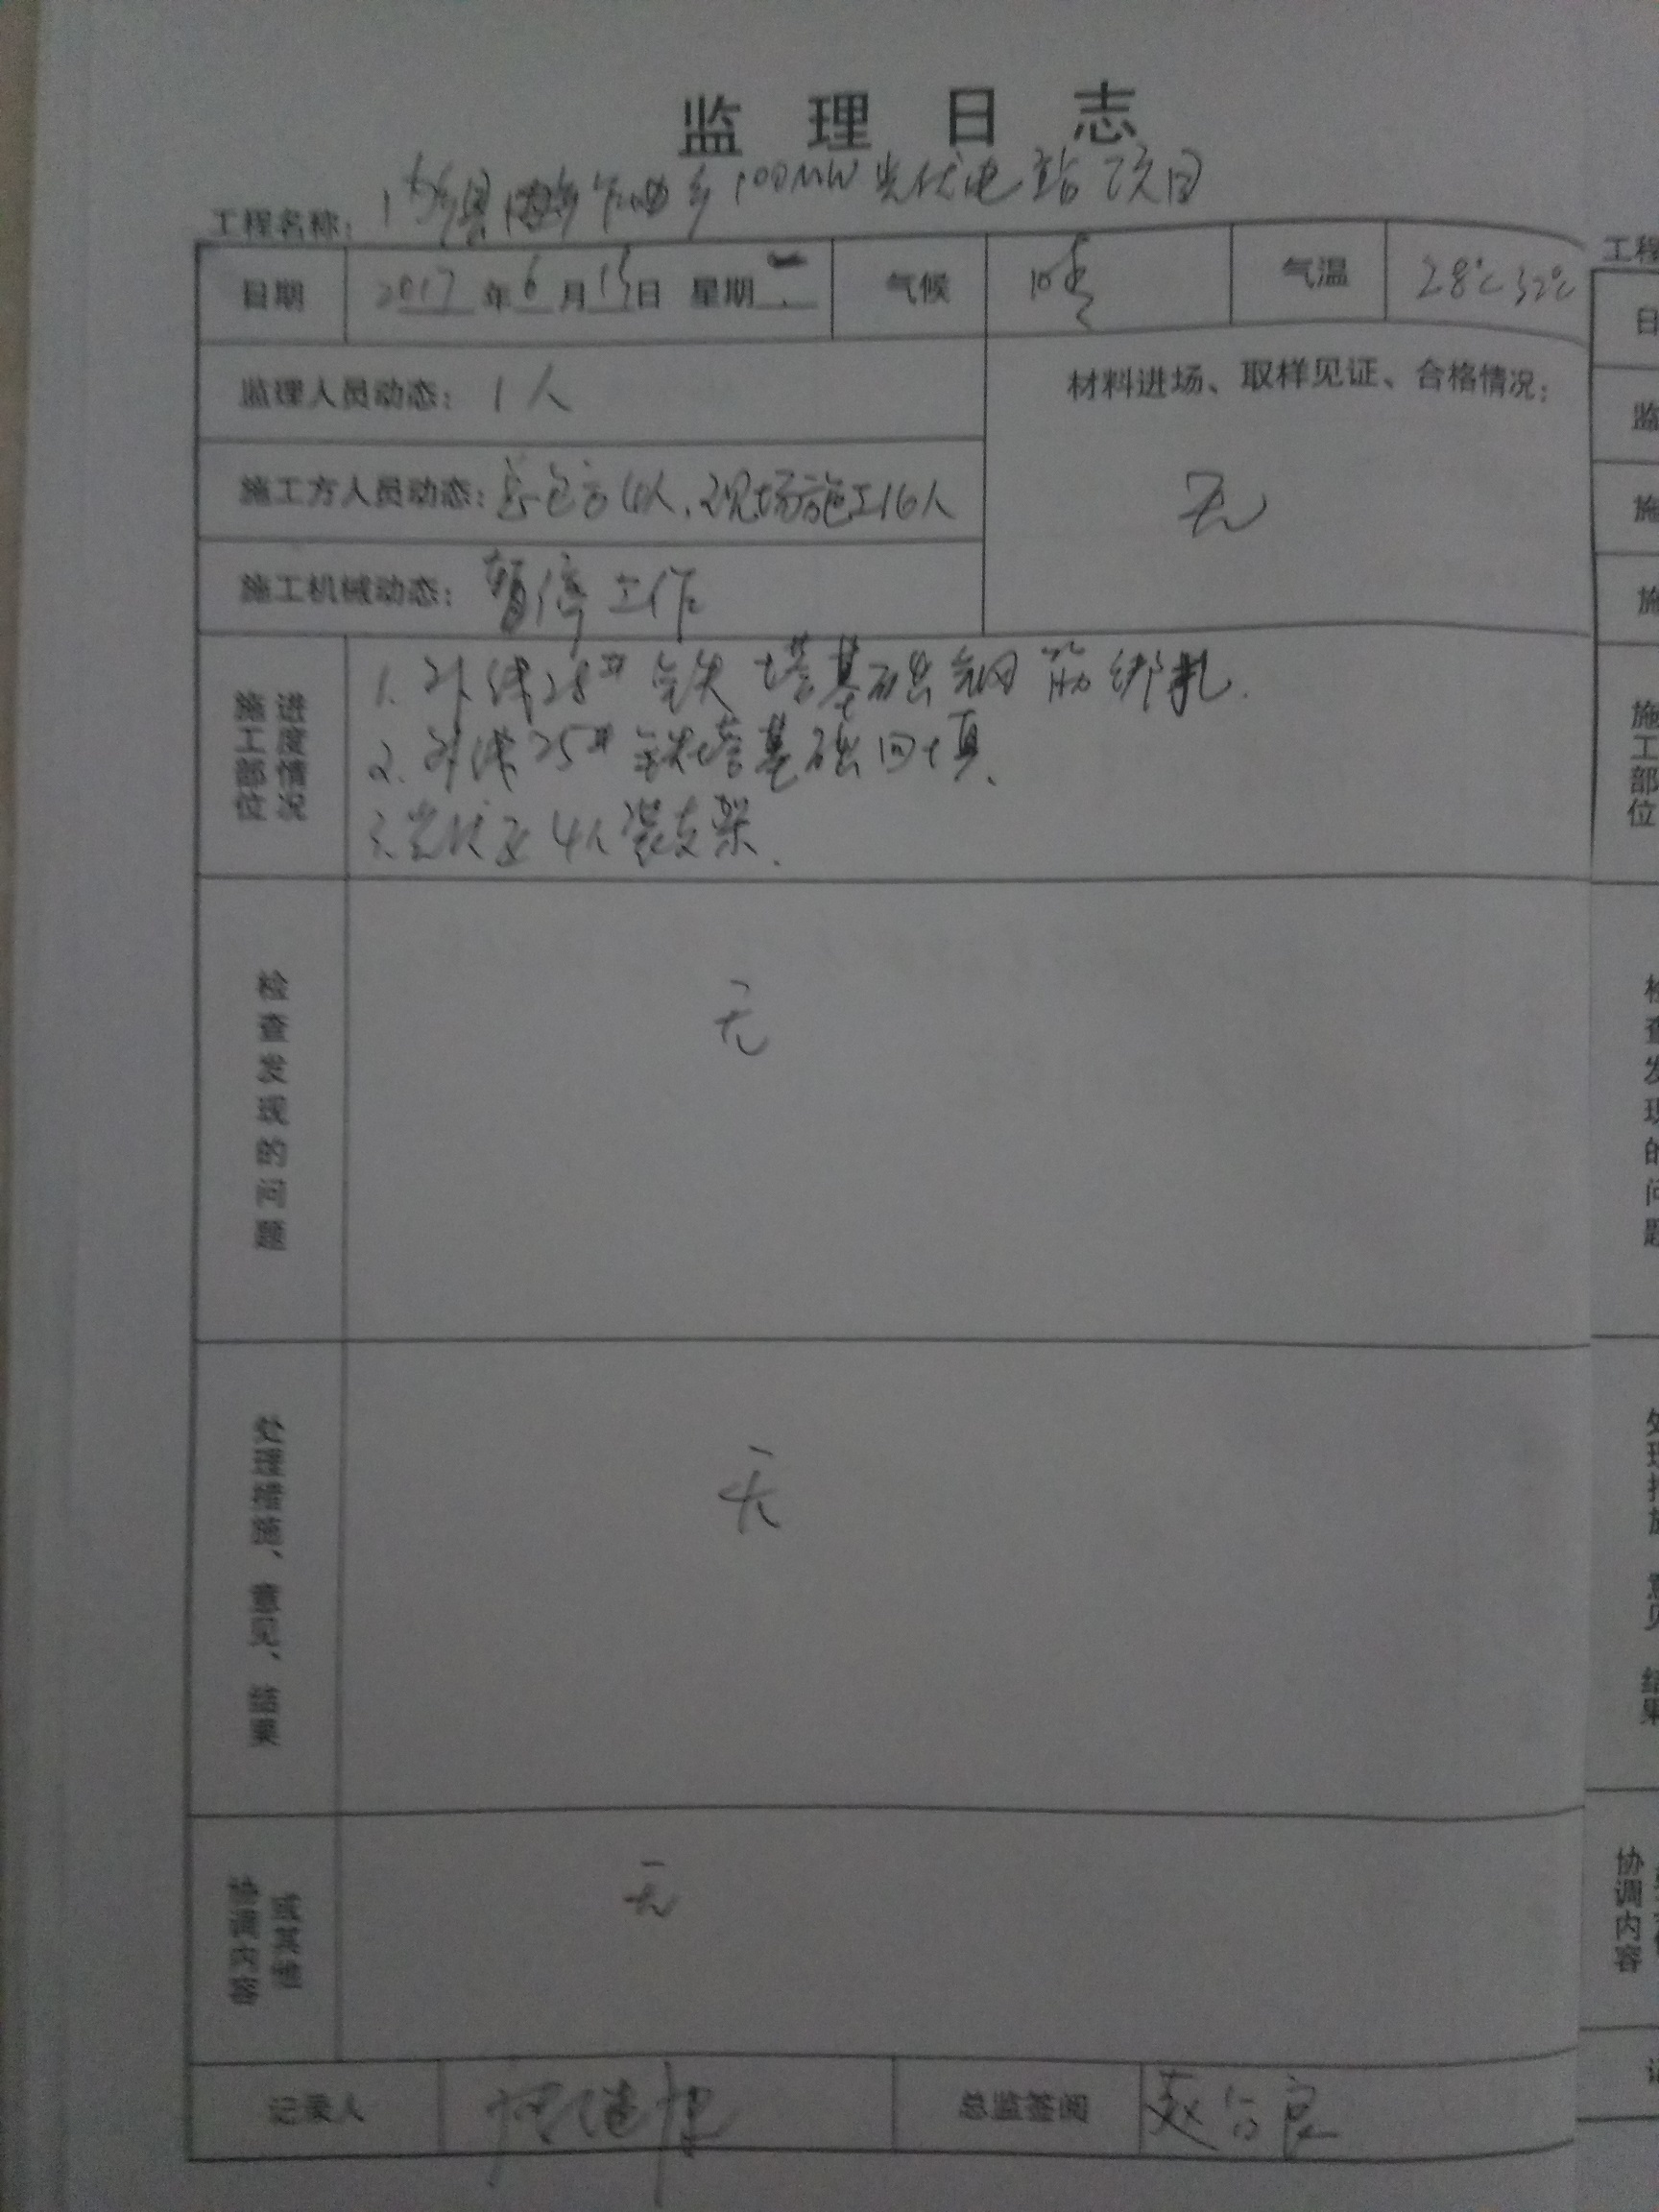 监理日志
工程名称: 内乡县 乡100MW光伏电站项目
日期 2017年6月13日 星期二 气候 晴 气温 28℃ 32℃
监理人员动态: 1人
材料进场、取样见证、合格情况:
无
施工方人员动态: 总包方4人,现场施工16人
施工机械动态: 暂停工作
施工部位
进度情况
1. 外线28# 铁塔基础钢筋绑扎.
2. 外线25# 铁塔基础回填.
3. 光伏区4人装支架.
检查发现的问题
无
处理措施、意见、结果
无
协调内容
或其他
无
记录人
总监签阅
工程
日
监
施
施
施工部位
检查发现的问题
协调内容